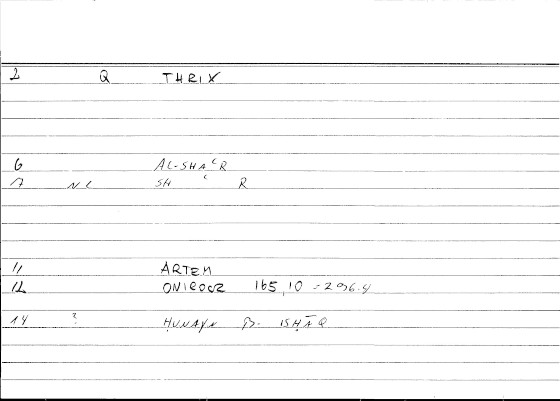 2 Q THRIX
6 AL-SHAʿR
7 NL SH ʿ R
11 ARTEM
12 ONIROCR 165,10 = 296.4
14 ? ḤUNAYN B. ISḤĀQ